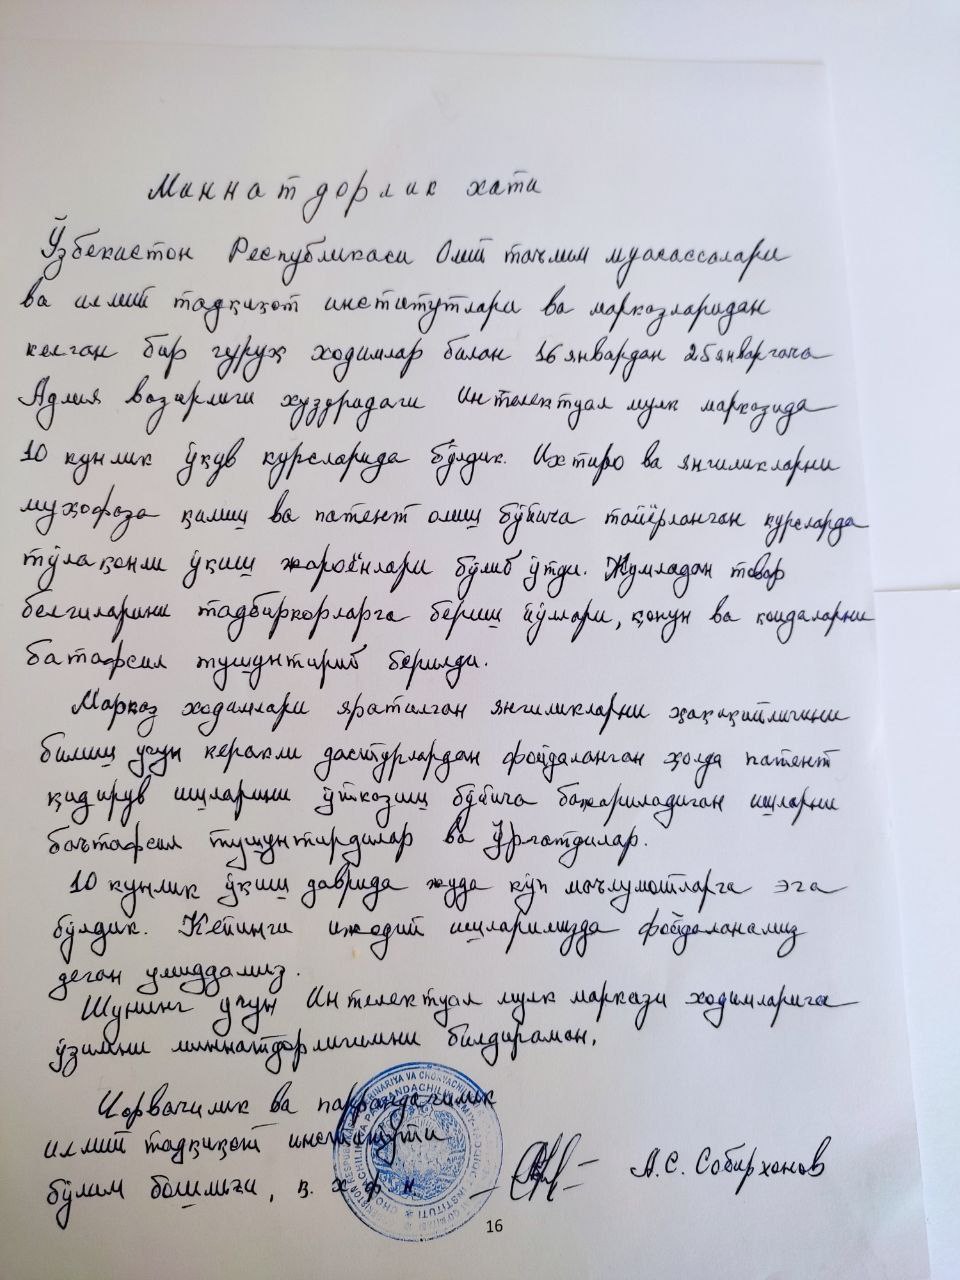 Миннатдорлик хати
Ўзбекистон Республикаси Олий таълим муассасалари
ва илмий тадқиқот институтлари ва марказларидан
келган бир гуруҳ ходимлар билан 16 январдан 25 январгача
Адлия вазирлиги хуздридаги Интелектуал мулк марказида
10 кунлик ўқув курсларида бўлдик. Ихтиро ва янгиликларни
муҳофаза қилиш ва патент олиш бўйича тайёрланган курсларда
тўлақонли ўқиш жараёнлари бўлиб ўтди. Жумладан товар
белгиларини тадбиркорларга бериш йўллари, қонун ва қоидаларни
батафсил тушунтириб берилди.
Марказ ходимлари яратилган янгиликларни ҳақиқийлигини
билиш учун керакли дастурлардан фойдаланган ҳолда патент
қидирув ишларини ўтказиш бўйича бажариладиган ишларни
баътафсил тушунтирдилар ва ўргатдилар.
10 кунлик ўқиш даврида жуда кўп маълумотларга эга
бўлдик. Кейинги ижодий ишларимизда фойдаланамиз
деган умиддамиз.
Шунинг учун Интелектуал мулк маркази ходимларига
ўзимни миннатдорлигимни билдираман.
Чорвачилик ва паррандачилик
илмий тадқиқот институти
бўлим бошлиғи, қ. х. ф. н.
А. С. Собирхонов
16